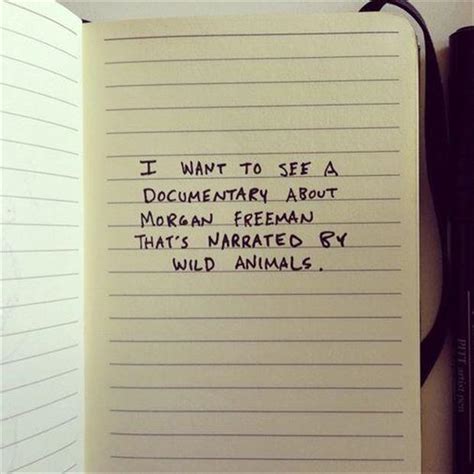 I WANT TO SEE A
DOCUMENTARY ABOUT
MORGAN FREEMAN
THAT'S NARRATED BY
WILD ANIMALS.
PITT artist pen